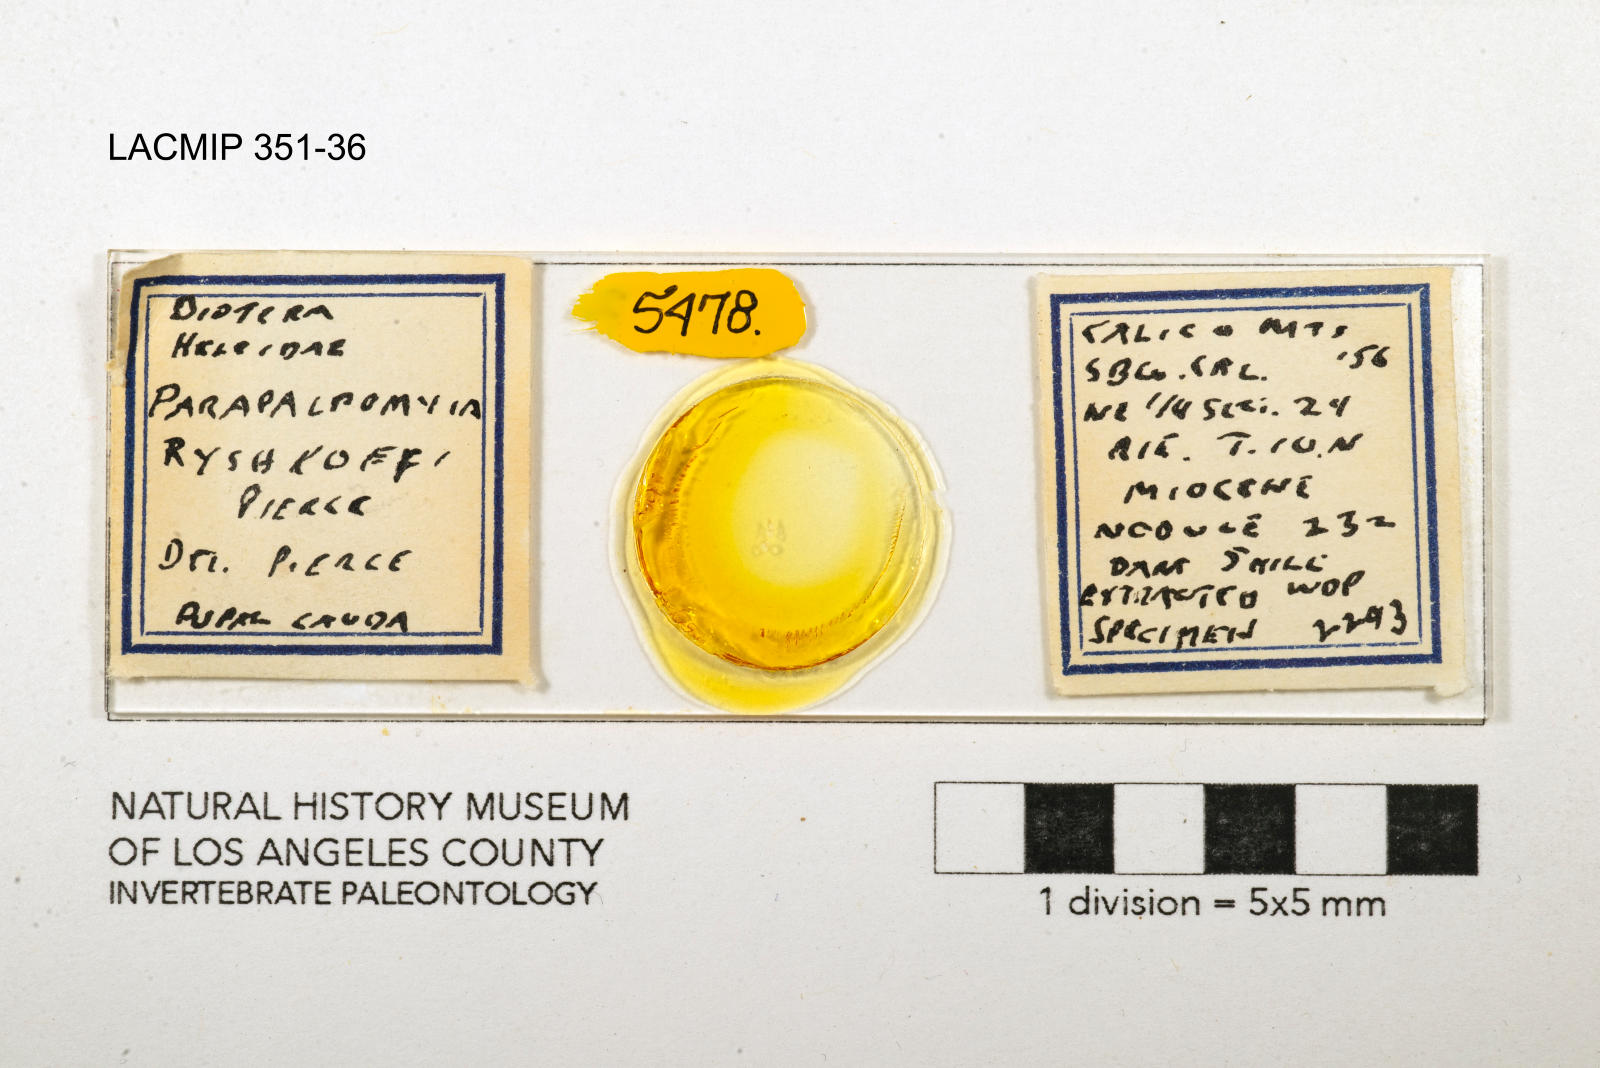 LACMIP 351-36
DIPTERA
HELEIDAE
PARAPALPOMYIA
RYSHKOFFI
PIERCE
DET. PIERCE
PUPAL CAUDA
5478.
CALICO MTS
SBCO. CAL. '56
NE 1/4 SEC. 24
R1E. T.10.N
MIOCENE
NODULE 232
DARK SHALE
EXTRACTED WDP
SPECIMEN 2293
NATURAL HISTORY MUSEUM
OF LOS ANGELES COUNTY
INVERTEBRATE PALEONTOLOGY
1 division = 5x5 mm